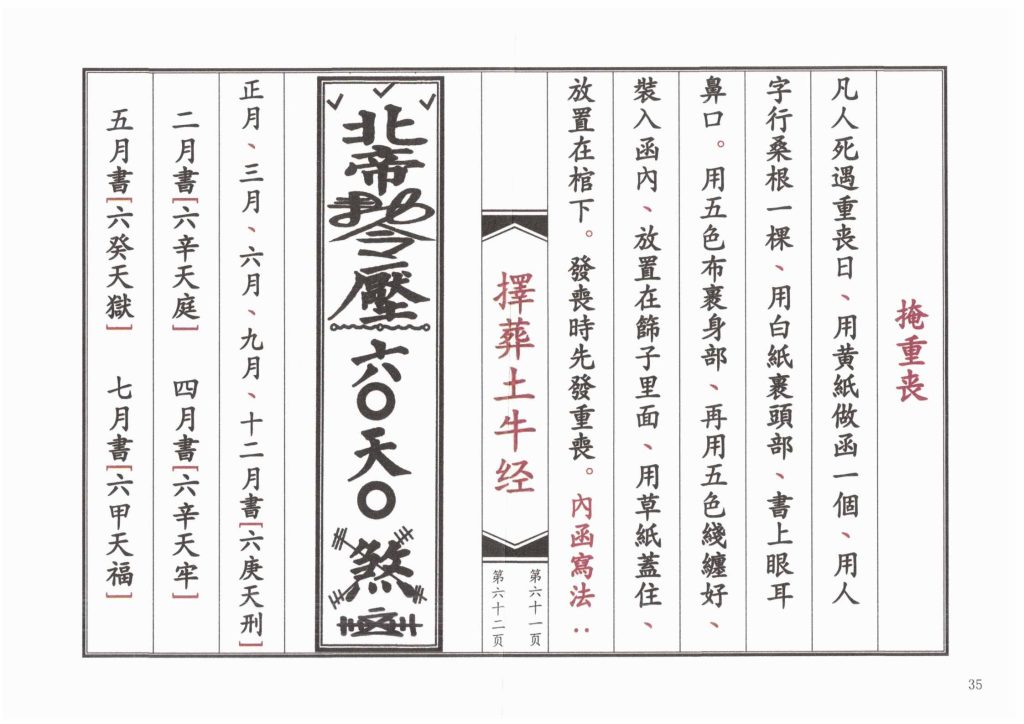 掩重喪
凡人死遇重喪日、用黄紙做函一個、用人
字行桑根一棵、用白紙裹頭部、書上眼耳
鼻口。用五色布裹身部、再用五色綫纏好、
裝入函內、放置在篩子里面、用草紙蓋住、
放置在棺下。發喪時先發重喪。內函寫法：
擇葬土牛经
第六十一页
第六十二页
北帝敕令壓六〇天〇煞
正月、三月、六月、九月、十二月書[六庚天刑]
二月書[六辛天庭] 四月書[六辛天牢]
五月書[六癸天獄] 七月書[六甲天福]
35